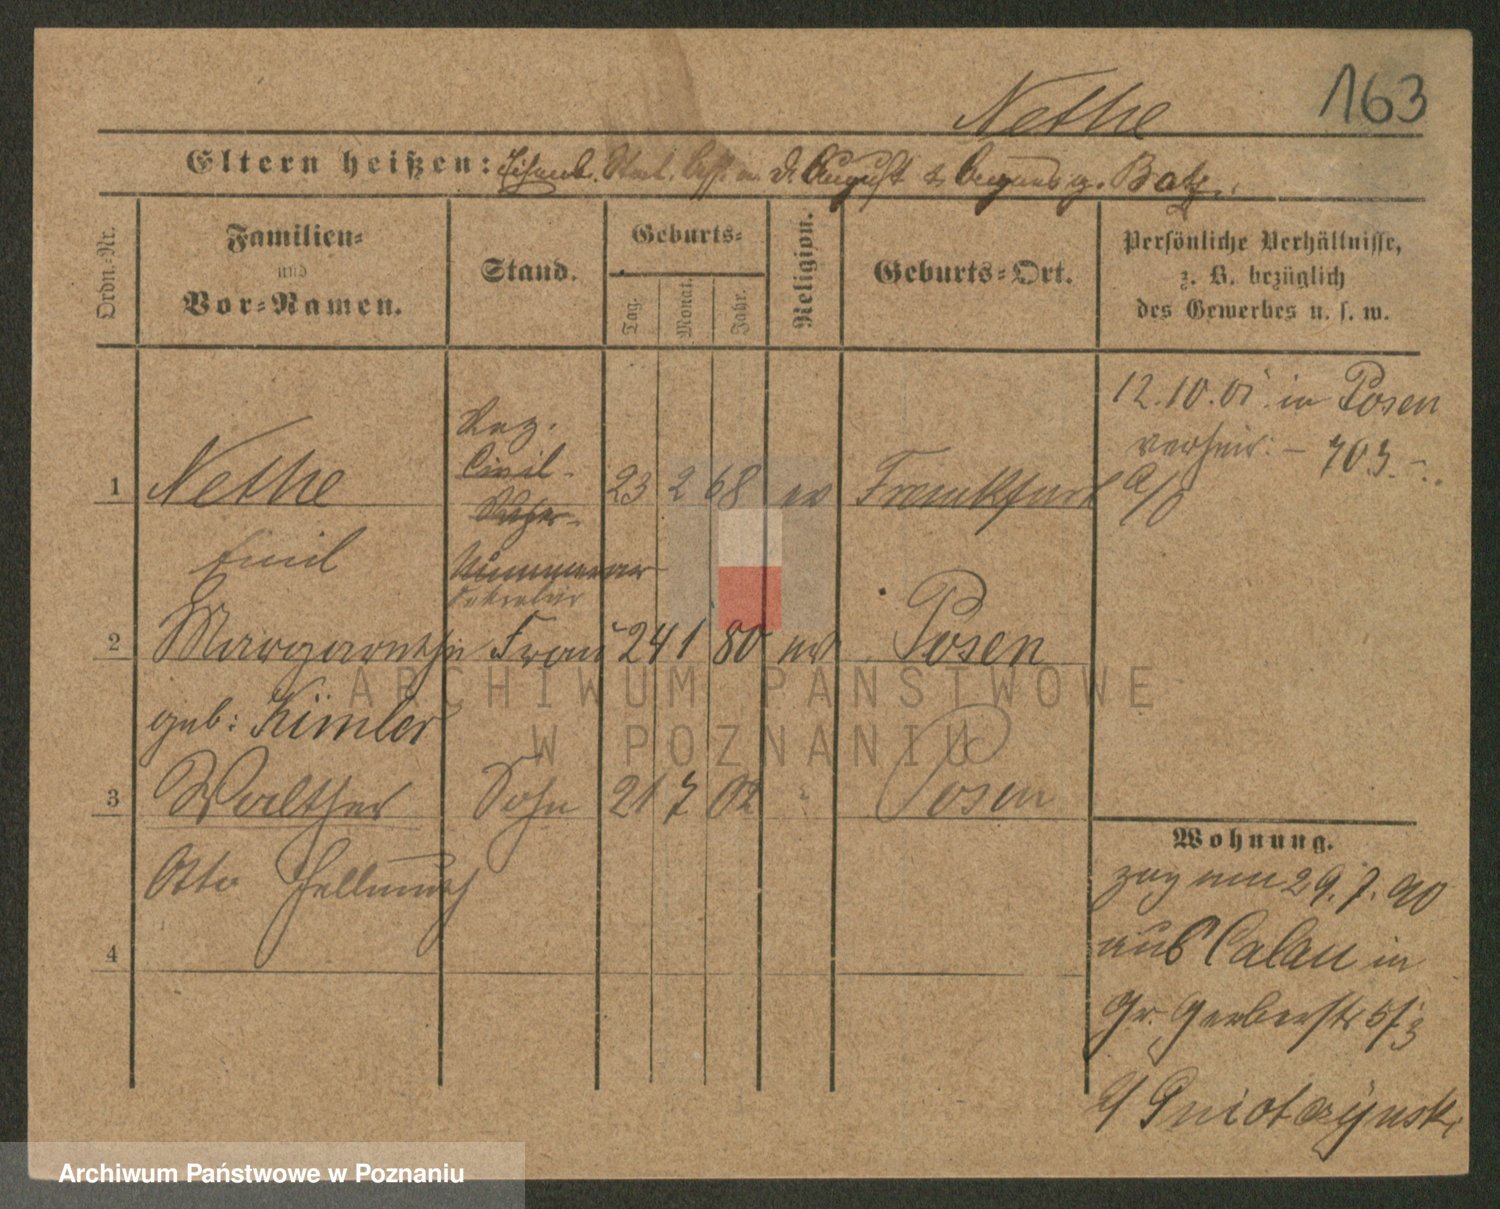 163
Nethe
Eltern heißen: Eisenb. Stat. Ass. a. D. August & g. Batz.
Ordn.-Nr.
Familien-
und
Vor-Namen.
Stand.
Geburts-
Tag.
Monat.
Jahr.
Religion.
Geburts-Ort.
Persönliche Verhältnisse,
z. B. bezüglich
des Gewerbes u. s. w.
12.10.01. in Posen
verheir. – 703 –
Reg.
Civil-
1 Nethe 23 2 68 ev Frankfurt a/O
Emil
Sekretär
2 Margarethe Frau 24 1 80 ev Posen
geb: Kimler
3 Walther Sohn 21 7 02 Posen
Otto Hellmuth
4
Wohnung.
zog am 29.7.90
aus Calau in
Gr. Gerberstr 5/3
b/ Gniotczynski
ARCHIWUM PAŃSTWOWE
W POZNANIU
Archiwum Państwowe w Poznaniu